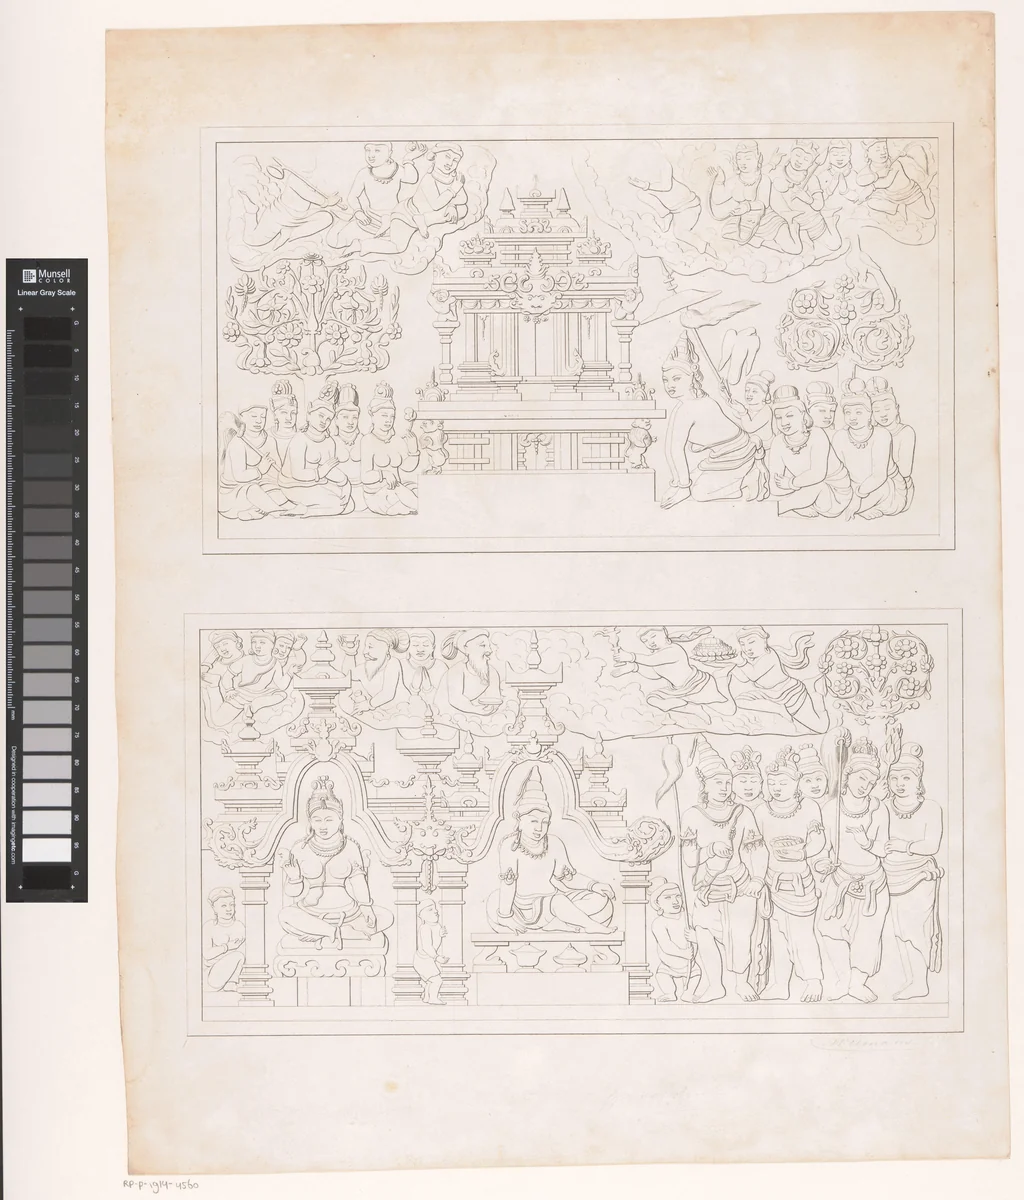 Munsell
COLOR
Linear Gray Scale
G
5
10
15
20
25
30
35
40
45
50
55
60
65
70
75
80
85
90
95
G
mm
Designed in cooperation with imagingetc.com
RP-P-1914-4560